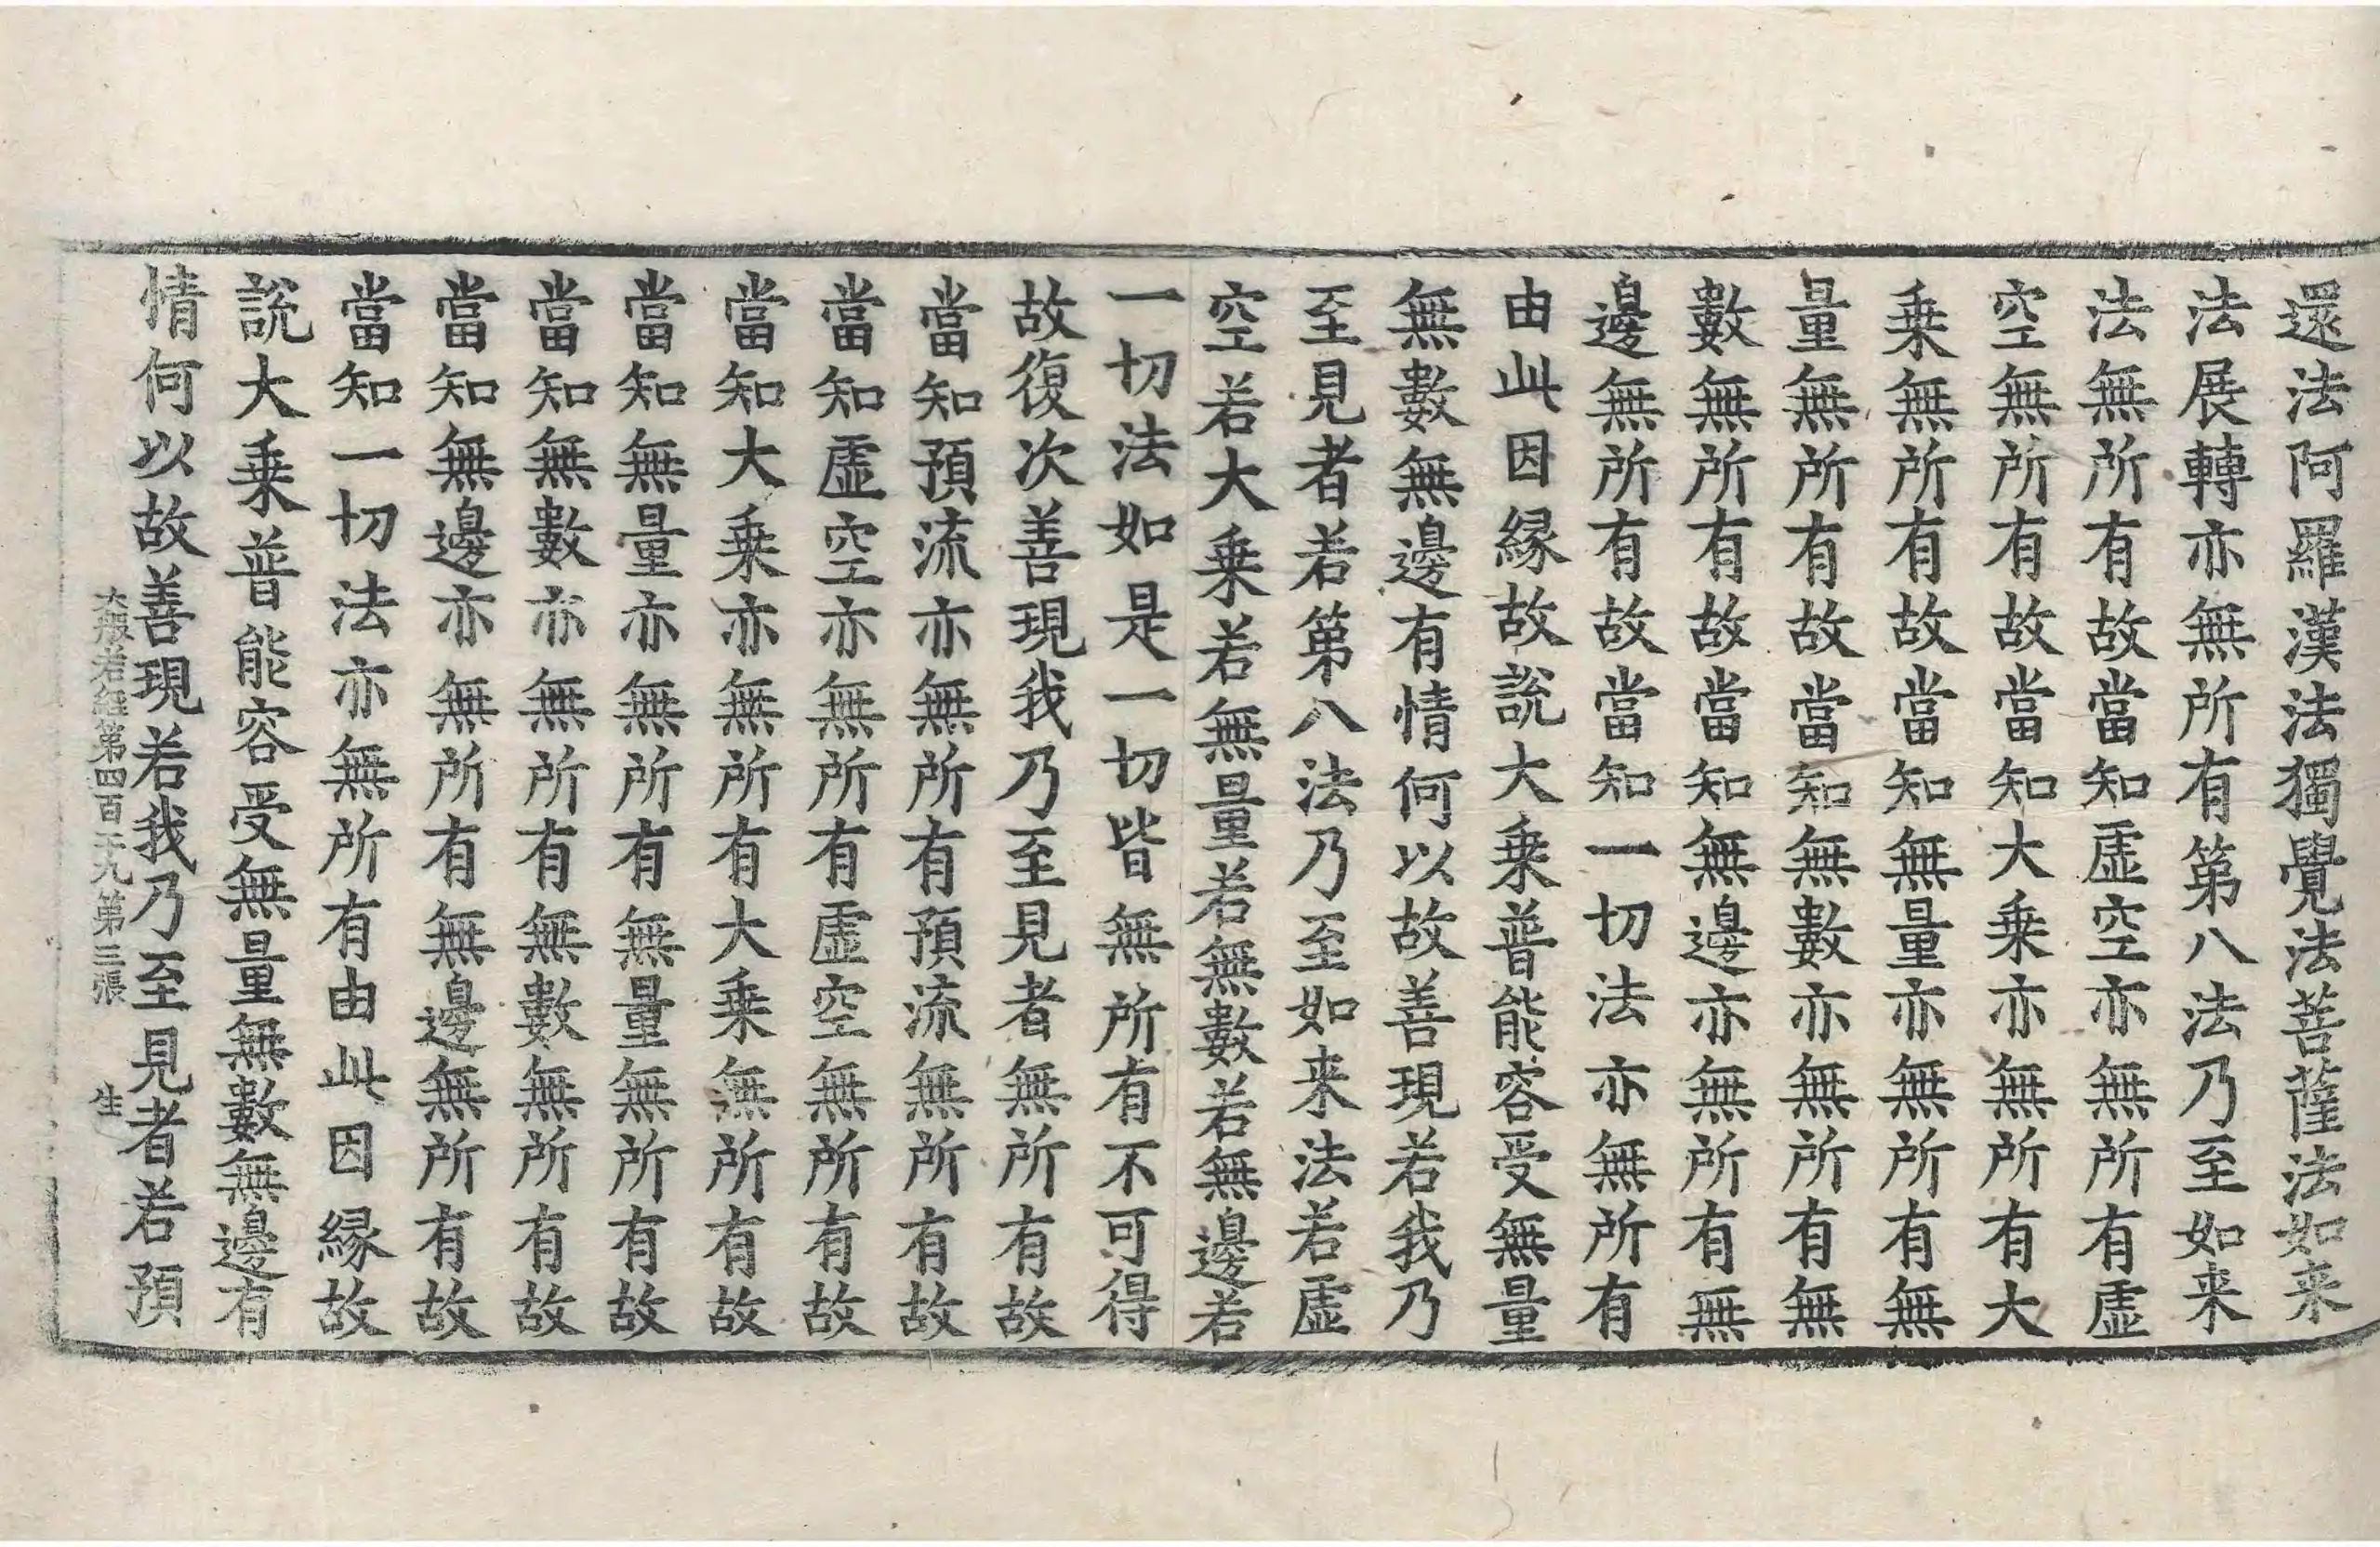 還法阿羅漢法獨覺法菩薩法如来
法展轉亦無所有第八法乃至如来
法無所有故當知虛空亦無所有虛
空無所有故當知大乗亦無所有大
乗無所有故當知無量亦無所有無
量無所有故當知無數亦無所有無
數無所有故當知無邊亦無所有無
邊無所有故當知一切法亦無所有
由此因縁故說大乗普能容受無量
無數無邊有情何以故善現若我乃
至見者若第八法乃至如来法若虛
空若大乗若無量若無數若無邊若
一切法如是一切皆無所有不可得
故復次善現我乃至見者無所有故
當知預流亦無所有預流無所有故
當知虛空亦無所有虛空無所有故
當知大乗亦無所有大乗無所有故
當知無量亦無所有無量無所有故
當知無數亦無所有無數無所有故
當知無邊亦無所有無邊無所有故
當知一切法亦無所有由此因縁故
說大乗普能容受無量無數無邊有
情何以故善現若我乃至見者若預
大般若經第四百十九第三張 生